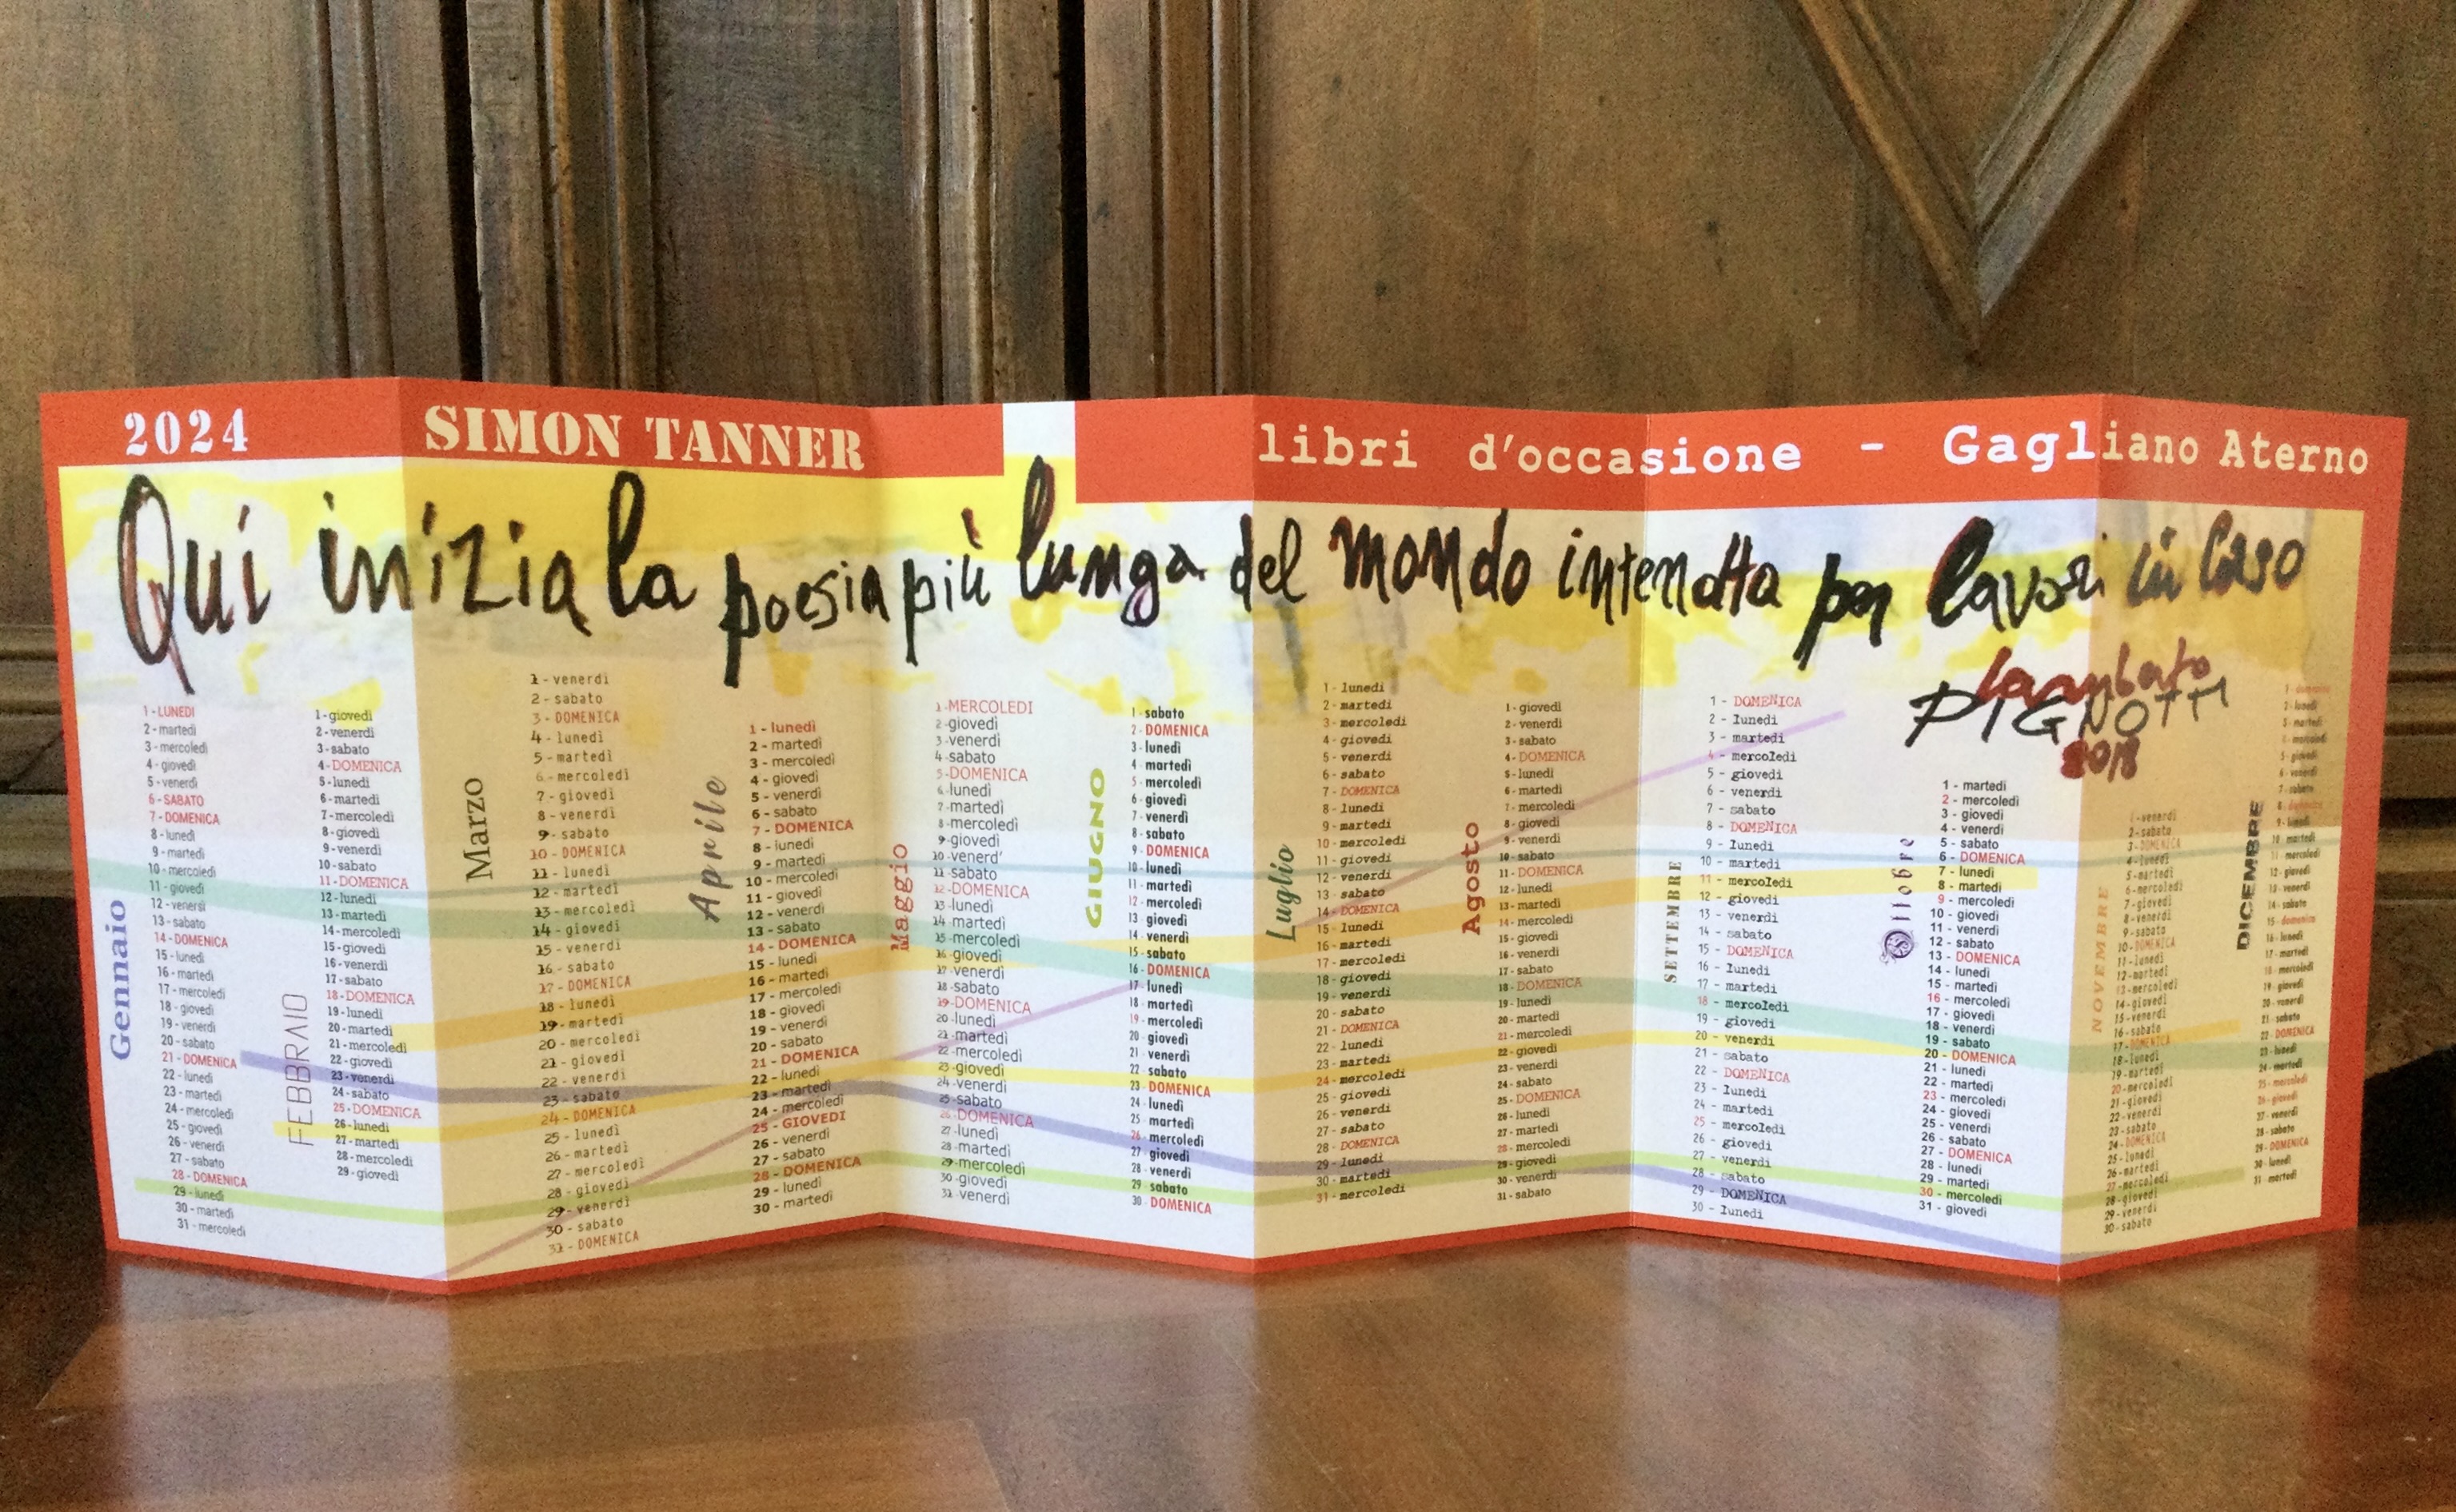 2024
SIMON TANNER
libri d'occasione - Gagliano Aterno
Qui inizia la poesia più lunga del mondo interrotta per lavori in corso
Lamberto
PIGNOTTI
2018
Gennaio
1 - LUNEDI
2 - martedì
3 - mercoledì
4 - giovedì
5 - venerdì
6 - SABATO
7 - DOMENICA
8 - lunedì
9 - martedì
10 - mercoledì
11 - giovedì
12 - venersì
13 - sabato
14 - DOMENICA
15 - lunedì
16 - martedì
17 - mercoledì
18 - giovedì
19 - venerdì
20 - sabato
21 - DOMENICA
22 - lunedì
23 - martedì
24 - mercoledì
25 - giovedì
26 - venerdì
27 - sabato
28 - DOMENICA
29 - lunedì
30 - martedì
31 - mercoledì
FEBBRAIO
1 - giovedì
2 - venerdì
3 - sabato
4 - DOMENICA
5 - lunedì
6 - martedì
7 - mercoledì
8 - giovedì
9 - venerdì
10 - sabato
11 - DOMENICA
12 - lunedì
13 - martedì
14 - mercoledì
15 - giovedì
16 - venerdì
17 - sabato
18 - DOMENICA
19 - lunedì
20 - martedì
21 - mercoledì
22 - giovedì
23 - venerdì
24 - sabato
25 - DOMENICA
26 - lunedì
27 - martedì
28 - mercoledì
29 - giovedì
Marzo
1 - venerdì
2 - sabato
3 - DOMENICA
4 - lunedì
5 - martedì
6 - mercoledì
7 - giovedì
8 - venerdì
9 - sabato
10 - DOMENICA
11 - lunedì
12 - martedì
13 - mercoledì
14 - giovedì
15 - venerdì
16 - sabato
17 - DOMENICA
18 - lunedì
19 - martedì
20 - mercoledì
21 - giovedì
22 - venerdì
23 - sabato
24 - DOMENICA
25 - lunedì
26 - martedì
27 - mercoledì
28 - giovedì
29 - venerdì
30 - sabato
31 - DOMENICA
Aprile
1 - lunedì
2 - martedì
3 - mercoledì
4 - giovedì
5 - venerdì
6 - sabato
7 - DOMENICA
8 - lunedì
9 - martedì
10 - mercoledì
11 - giovedì
12 - venerdì
13 - sabato
14 - DOMENICA
15 - lunedì
16 - martedì
17 - mercoledì
18 - giovedì
19 - venerdì
20 - sabato
21 - DOMENICA
22 - lunedì
23 - martedì
24 - mercoledì
25 - GIOVEDI
26 - venerdì
27 - sabato
28 - DOMENICA
29 - lunedì
30 - martedì
Maggio
1 - MERCOLEDI
2 - giovedì
3 - venerdì
4 - sabato
5 - DOMENICA
6 - lunedì
7 - martedì
8 - mercoledì
9 - giovedì
10 - venerd'
11 - sabato
12 - DOMENICA
13 - lunedì
14 - martedì
15 - mercoledì
16 - giovedì
17 - venerdì
18 - sabato
19 - DOMENICA
20 - lunedì
21 - martedì
22 - mercoledì
23 - giovedì
24 - venerdì
25 - sabato
26 - DOMENICA
27 - lunedì
28 - martedì
29 - mercoledì
30 - giovedì
31 - venerdì
GIUGNO
1 - sabato
2 - DOMENICA
3 - lunedì
4 - martedì
5 - mercoledì
6 - giovedì
7 - venerdì
8 - sabato
9 - DOMENICA
10 - lunedì
11 - martedì
12 - mercoledì
13 - giovedì
14 - venerdì
15 - sabato
16 - DOMENICA
17 - lunedì
18 - martedì
19 - mercoledì
20 - giovedì
21 - venerdì
22 - sabato
23 - DOMENICA
24 - lunedì
25 - martedì
26 - mercoledì
27 - giovedì
28 - venerdì
29 - sabato
30 - DOMENICA
Luglio
1 - lunedì
2 - martedì
3 - mercoledì
4 - giovedì
5 - venerdì
6 - sabato
7 - DOMENICA
8 - lunedì
9 - martedì
10 - mercoledì
11 - giovedì
12 - venerdì
13 - sabato
14 - DOMENICA
15 - lunedì
16 - martedì
17 - mercoledì
18 - giovedì
19 - venerdì
20 - sabato
21 - DOMENICA
22 - lunedì
23 - martedì
24 - mercoledì
25 - giovedì
26 - venerdì
27 - sabato
28 - DOMENICA
29 - lunedì
30 - martedì
31 - mercoledì
Agosto
1 - giovedì
2 - venerdì
3 - sabato
4 - DOMENICA
5 - lunedì
6 - martedì
7 - mercoledì
8 - giovedì
9 - venerdì
10 - sabato
11 - DOMENICA
12 - lunedì
13 - martedì
14 - mercoledì
15 - giovedì
16 - venerdì
17 - sabato
18 - DOMENICA
19 - lunedì
20 - martedì
21 - mercoledì
22 - giovedì
23 - venerdì
24 - sabato
25 - DOMENICA
26 - lunedì
27 - martedì
28 - mercoledì
29 - giovedì
30 - venerdì
31 - sabato
SETTEMBRE
1 - DOMENICA
2 - lunedì
3 - martedì
4 - mercoledì
5 - giovedì
6 - venerdì
7 - sabato
8 - DOMENICA
9 - lunedì
10 - martedì
11 - mercoledì
12 - giovedì
13 - venerdì
14 - sabato
15 - DOMENICA
16 - lunedì
17 - martedì
18 - mercoledì
19 - giovedì
20 - venerdì
21 - sabato
22 - DOMENICA
23 - lunedì
24 - martedì
25 - mercoledì
26 - giovedì
27 - venerdì
28 - sabato
29 - DOMENICA
30 - lunedì
Ottobre
1 - martedì
2 - mercoledì
3 - giovedì
4 - venerdì
5 - sabato
6 - DOMENICA
7 - lunedì
8 - martedì
9 - mercoledì
10 - giovedì
11 - venerdì
12 - sabato
13 - DOMENICA
14 - lunedì
15 - martedì
16 - mercoledì
17 - giovedì
18 - venerdì
19 - sabato
20 - DOMENICA
21 - lunedì
22 - martedì
23 - mercoledì
24 - giovedì
25 - venerdì
26 - sabato
27 - DOMENICA
28 - lunedì
29 - martedì
30 - mercoledì
31 - giovedì
NOVEMBRE
1 - venerdì
2 - sabato
3 - DOMENICA
4 - lunedì
5 - martedì
6 - mercoledì
7 - giovedì
8 - venerdì
9 - sabato
10 - DOMENICA
11 - lunedì
12 - martedì
13 - mercoledì
14 - giovedì
15 - venerdì
16 - sabato
17 - DOMENICA
18 - lunedì
19 - martedì
20 - mercoledì
21 - giovedì
22 - venerdì
23 - sabato
24 - DOMENICA
25 - lunedì
26 - martedì
27 - mercoledì
28 - giovedì
29 - venerdì
30 - sabato
DICEMBRE